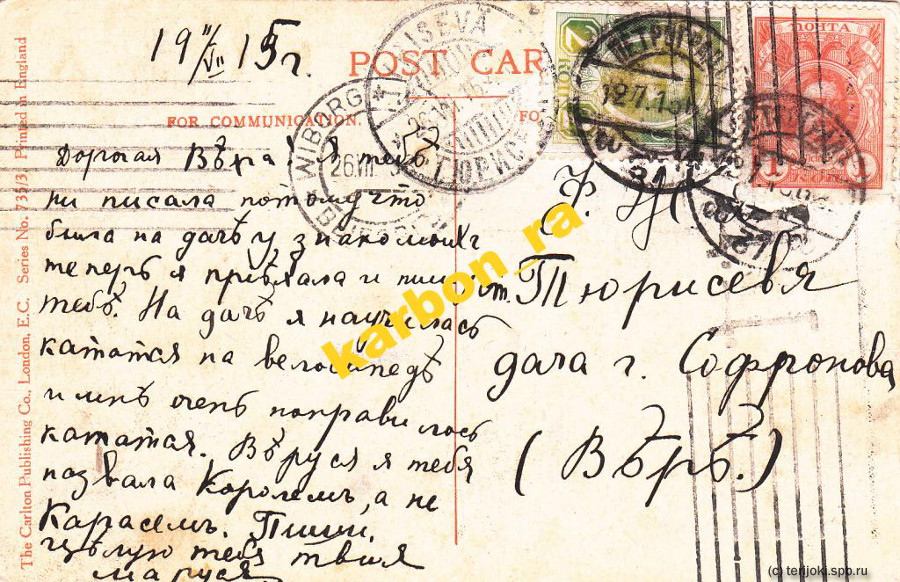 19 11/VII 15 г.
POST CARD
FOR COMMUNICATION.
Дорогая Вѣра! Я тебѣ
ни писала потомучто
была на дачѣ у знакомыхъ
теперь я приѣхала и пишу
тебѣ. На дачѣ я научилась
кататся на велосипедѣ
и мнѣ очень понравилось
кататся. Вѣруся я тебя
назвала Королемъ, а не
Карасемъ. Пиши.
Цѣлую тебя твоя
Маруся
Ф. Ж.
ст. Тюрисевя
дача г. Софронова
(Вѣрѣ.)
ПОЧТА
ПЕТРОГРАДЪ
12.7.15
WIBORG
26.VII
ТЮРИС
The Carlton Publishing Co., London, E.C. Series No. 735/3 Printed in England
karbon_ra
(c) terijoki.spb.ru